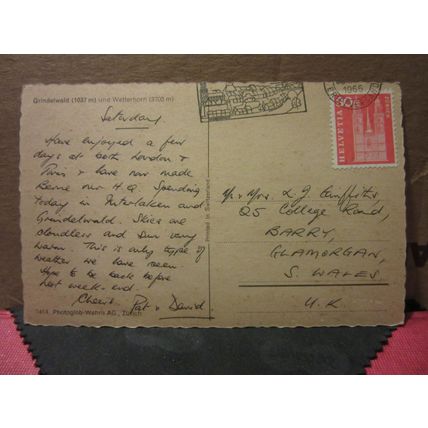 Grindelwald (1037 m) und Wetterhorn (3703 m)
Saturday
Have enjoyed a few
days at both London &
Paris & have now made
Berne our H.Q. Spending
today in Interlaken and
Grindelwald. Skies are
cloudless and Sun very
warm. This is only type of
weather we have seen
Hope to be back before
next week-end.
Cheers.
Pat & David.
7414 Photoglob-Wehrli AG, Zürich
Printed in Switzerland
1966
HELVETIA
Mr & Mrs. L J Griffiths
25 College Road,
BARRY,
GLAMORGAN,
S. WALES
U.K.